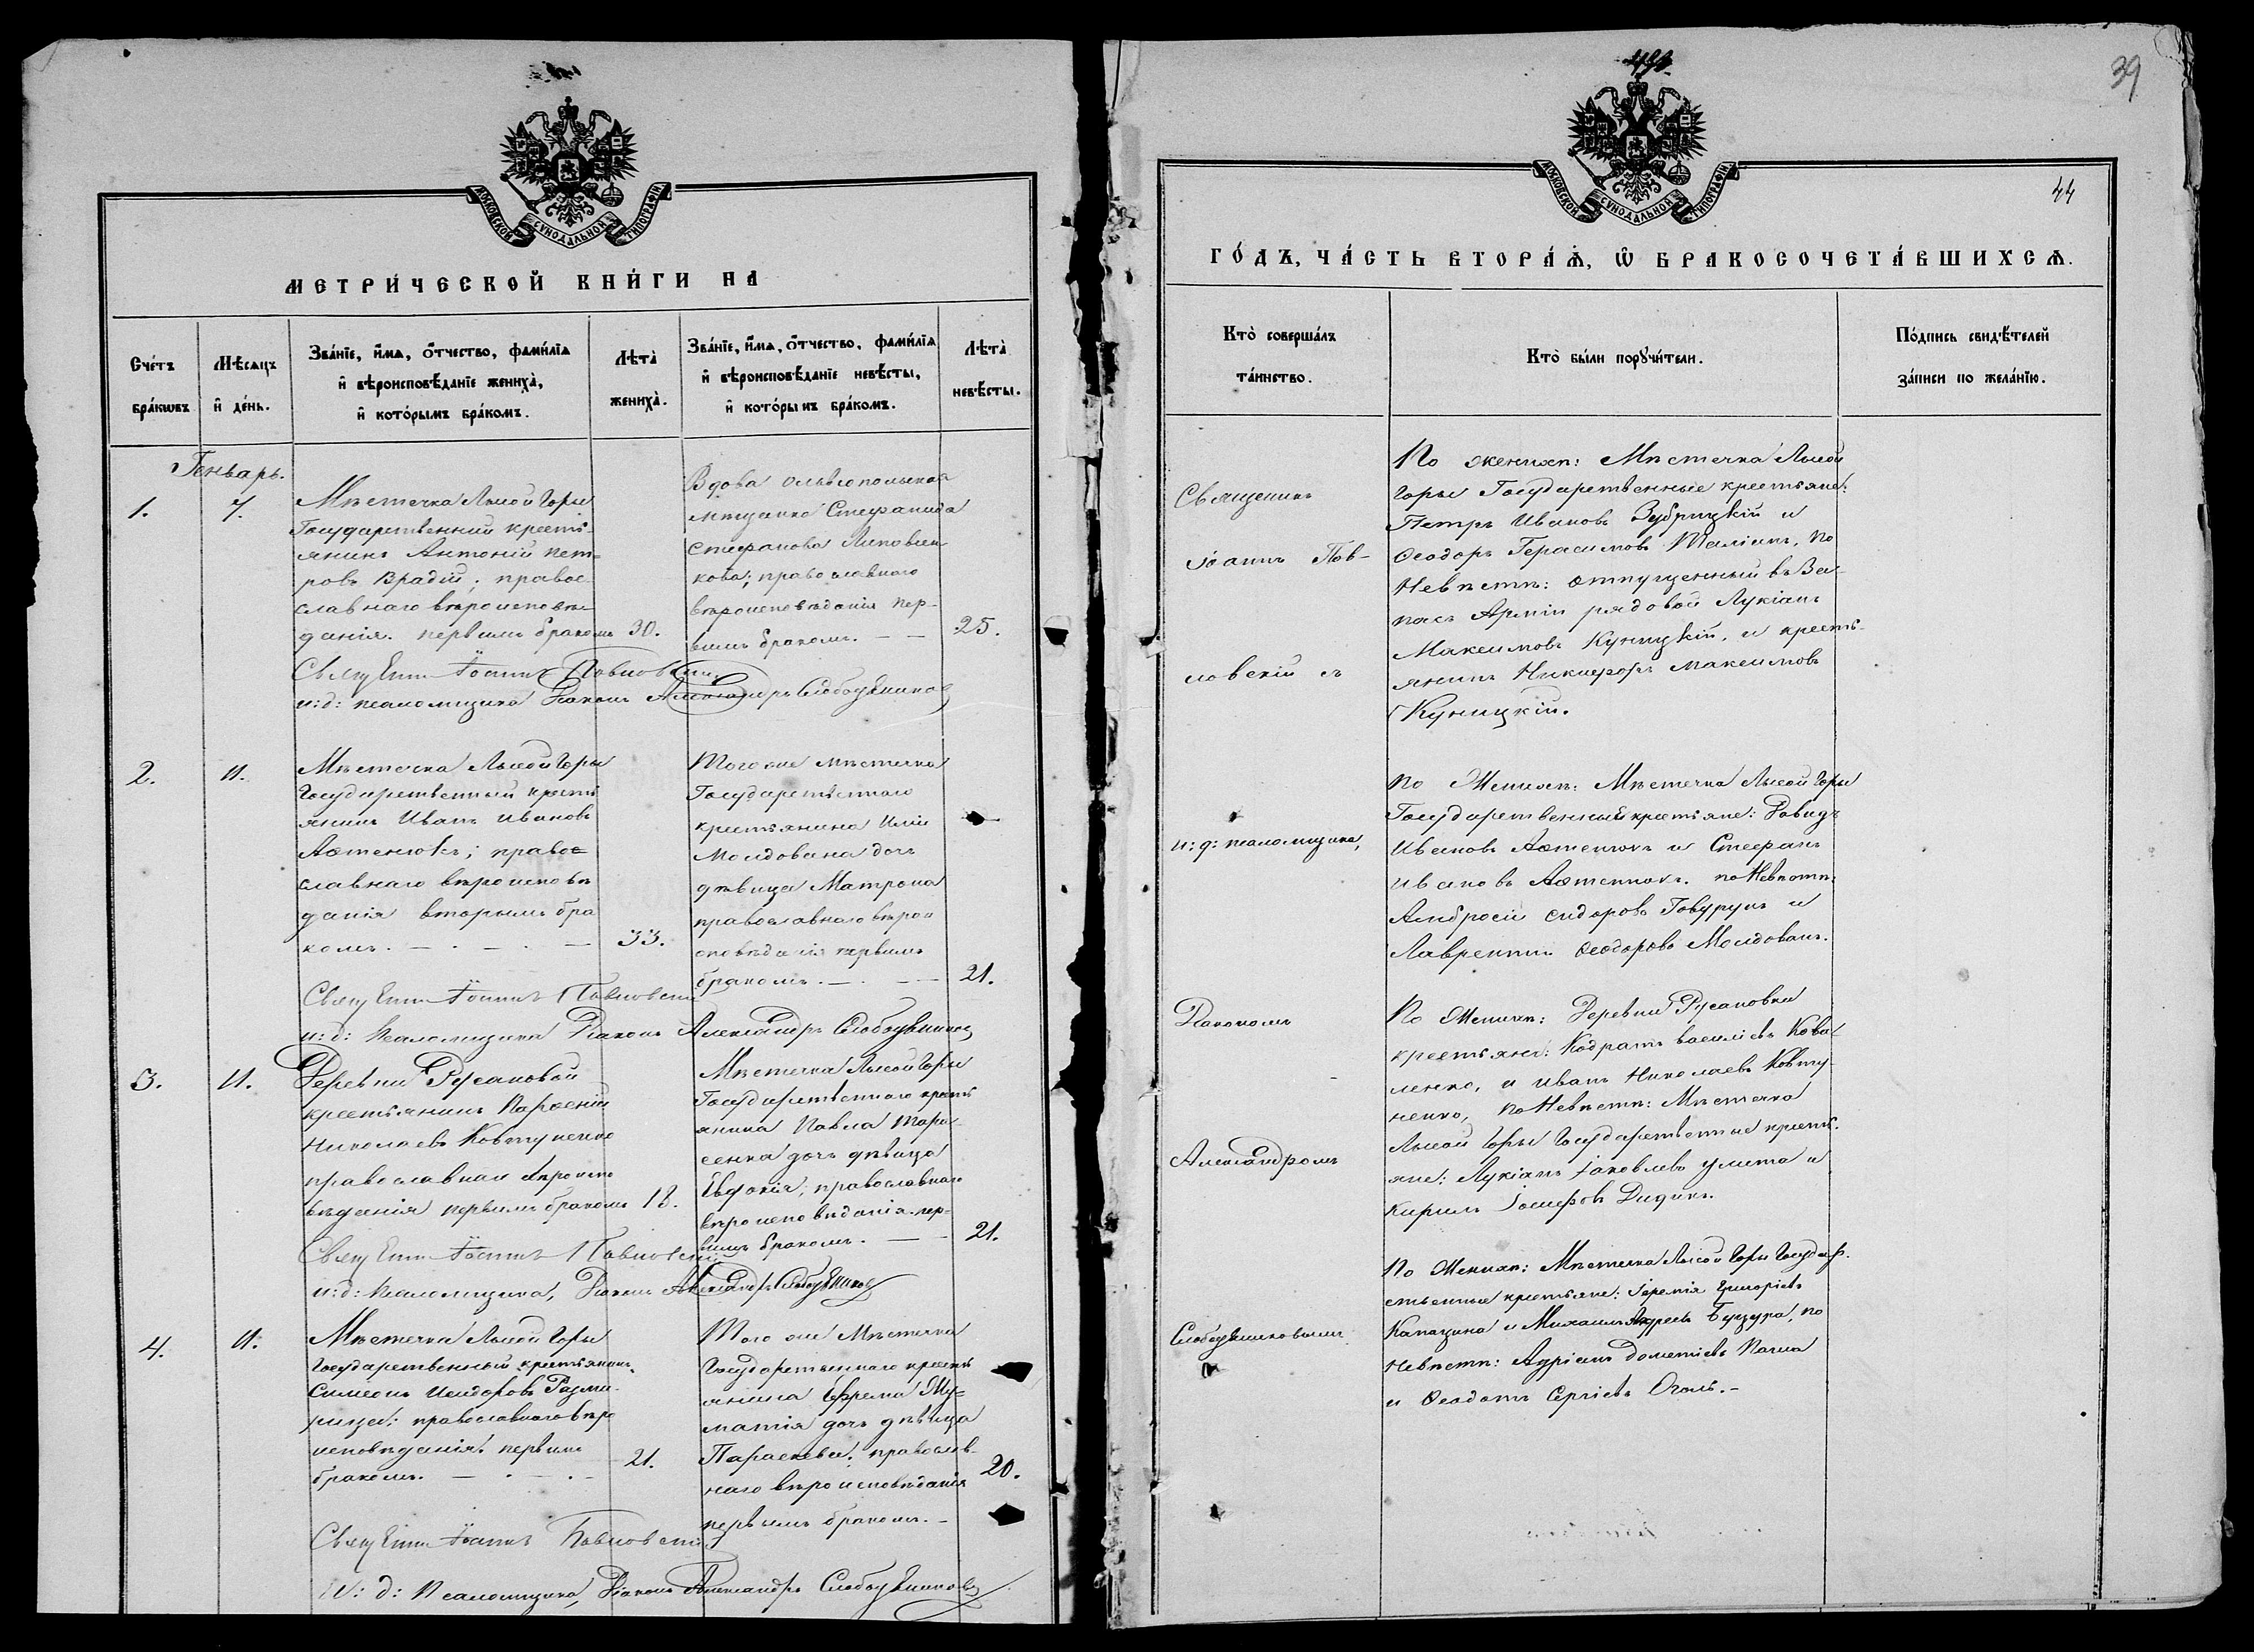 МОСКОВСКОЙ СѴНОДАЛЬНОЙ ТИПОГРАФІИ
МЕТРИ́ЧЕСКОЙ КНИ́ГИ НА
Сче́тъ бра́ковъ
Мѣ́сяцъ и де́нь.
Зва́нїе, и́мя, о́тчество, фами́лїя
и вѣроисповѣ́данїе жениха̀,
и кото́рымъ бра́комъ.
Лѣта̀
жениха̀.
Зва́нїе, и́мя, о́тчество, фами́лїя
и вѣроисповѣ́данїе невѣ́сты,
и кото́рымъ бра́комъ.
Лѣта̀
невѣ́сты.
Генварь.
1.
7.
Мѣстечка Лысой Горы
Государственный кресть-
янинъ Антоній Пет-
ровъ Врадій; право-
славнаго вѣроисповѣ-
данія. первымъ бракомъ
30.
Вдова Ольвіопольская
мѣщанка Стефанида
Стефанова Липовен-
кова; православнаго
вѣроисповѣданія пер-
вымъ бракомъ. — —
25.
Священ Іоаннъ Павловскій
и: д: псаломщика Діаконъ Александръ Слободяниковъ
2.
11.
Мѣстечка Лысой Горы
Государственный кресть
янинъ Иванъ Ивановъ
Артенюкъ; право-
славнаго вѣроисповѣ
данія вторымъ бра
комъ. — . — . —
33.
Того же мѣстечка
Государственнаго
крестьянина Иліи
Молдована дочь
дѣвица Матрона
православнаго вѣрои
сповѣданія первымъ
бракомъ. — . — —
21.
Священ Іоаннъ Павловскій
и: д: Псаломщика Діаконъ Александръ Слободяниковъ
3.
11.
Деревни Русановой
крестьянинъ Парфеній
Николаевъ Ковтуненко
православнаго вѣроиспо
вѣданія первымъ бракомъ
18.
Мѣстечка Лысой Горы
Государственнаго кресть
янина Павла Тара
сенка дочь дѣвица
Евдокія, православнаго
вѣроисповѣданія. пер-
вымъ бракомъ. — —
21.
Священ Іоаннъ Павловскій
и: д: Псаломщика, Діаконъ Александръ Слободяниковъ
4.
11.
Мѣстечка Лысой Горы
Государственный крестьянинъ
Симеонъ Исидоровъ
православнаго вѣро
исповѣданія. первымъ
бракомъ. — . — . —
21.
Того же Мѣстечка
Государственнаго кресть
янина Ефрема
дочь дѣвица
Параскева; православ-
наго вѣроисповѣданія
первымъ бракомъ. —
20.
Священ Іоаннъ Павловскій
И: д: Псаломщика, Діаконъ Александръ Слободяниковъ
39
МОСКОВСКОЙ СѴНОДАЛЬНОЙ ТИПОГРАФІИ
44
ГО́ДЪ, ЧА́СТЬ ВТОРА́Я, Ѽ БРАКОСОЧЕТА́ВШИХСЯ.
Кто̀ соверша́лъ
та́инство.
Кто̀ бы́ли поручи́тели.
По́дпись свидѣ́телей
за́писи по жела́нїю.
Священникъ
Іоаннъ Пав-
ловскій съ
и: д: псаломщика,
Діакономъ
Александромъ
Слободяниковымъ
По женихѣ: Мѣстечка Лысой
Горы Государственные крестьяне:
Петръ Ивановъ Зубрицкій и
Ѳеодоръ Герасимовъ По
Невѣстѣ: отпущенный въ За-
пасъ Арміи рядовой Лукіанъ
Максимовъ Куницкій, и кресть-
янинъ Никифоръ Максимовъ
Куницкій.
По Женихѣ: Мѣстечка Лысой Горы
Государственный крестьяне: Давидъ
Ивановъ Артенюкъ и Стефанъ
Ивановъ Артенюкъ. по Невѣстѣ:
Амбросій Сидоровъ и
Лаврентій Ѳеодоровъ Молдованъ.
По Женихѣ: Деревни Русановки
крестьяне: Кодратъ Василіевъ Кова-
ленко, и Иванъ Николаевъ Ковту-
ненко, по Невѣстѣ: Мѣстечка
Лысой Горы Государственные кресть-
яне: Лукіанъ Іаковлевъ и
Кирилъ Іосифовъ Дидикъ.
По Женихѣ: Мѣстечка Лысой Горы Государ-
ственные крестьяне: Іеремія Григоріевъ
Капацина и Михаилъ Андреевъ Буцура, по
Невѣстѣ: Адріанъ Дометіевъ
и Ѳеодотъ Сергіевъ —